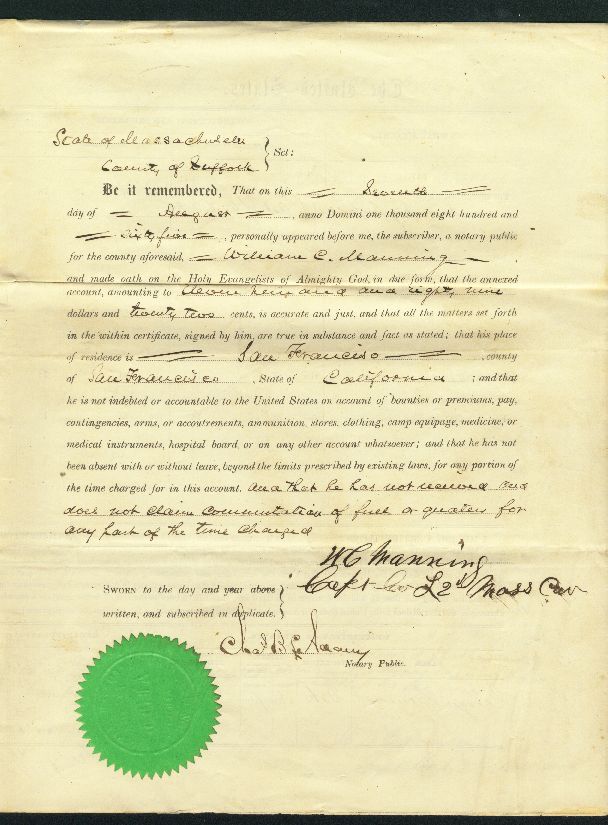 State of Massachusetts
County of Suffolk } Sct:
Be it remembered, That on this Seventh
day of August, anno Domini one thousand eight hundred and
sixty five, personally appeared before me, the subscriber, a notary public
for the county aforesaid, William C. Manning
and made oath on the Holy Evangelists of Almighty God, in due form, that the annexed
account, amounting to and eighty nine
dollars and twenty two cents, is accurate and just, and that all the matters set forth
in the within certificate, signed by him, are true in substance and fact as stated; that his place
of residence is San Francisco, county
of San Francisco, State of California; and that
he is not indebted or accountable to the United States on account of bounties or premiums, pay,
contingencies, arms, or accoutrements, ammunition, stores, clothing, camp equipage, medicine, or
medical instruments, hospital board, or on any other account whatsoever; and that he has not
been absent with or without leave, beyond the limits prescribed by existing laws, for any portion of
the time charged for in this account. and that he has not received and
does not claim commutation of fuel or quarters for
any part of the time charged
W C Manning
Capt Co L 2d Mass Cav
Sworn to the day and year above
written, and subscribed in duplicate. }
Notary Public.